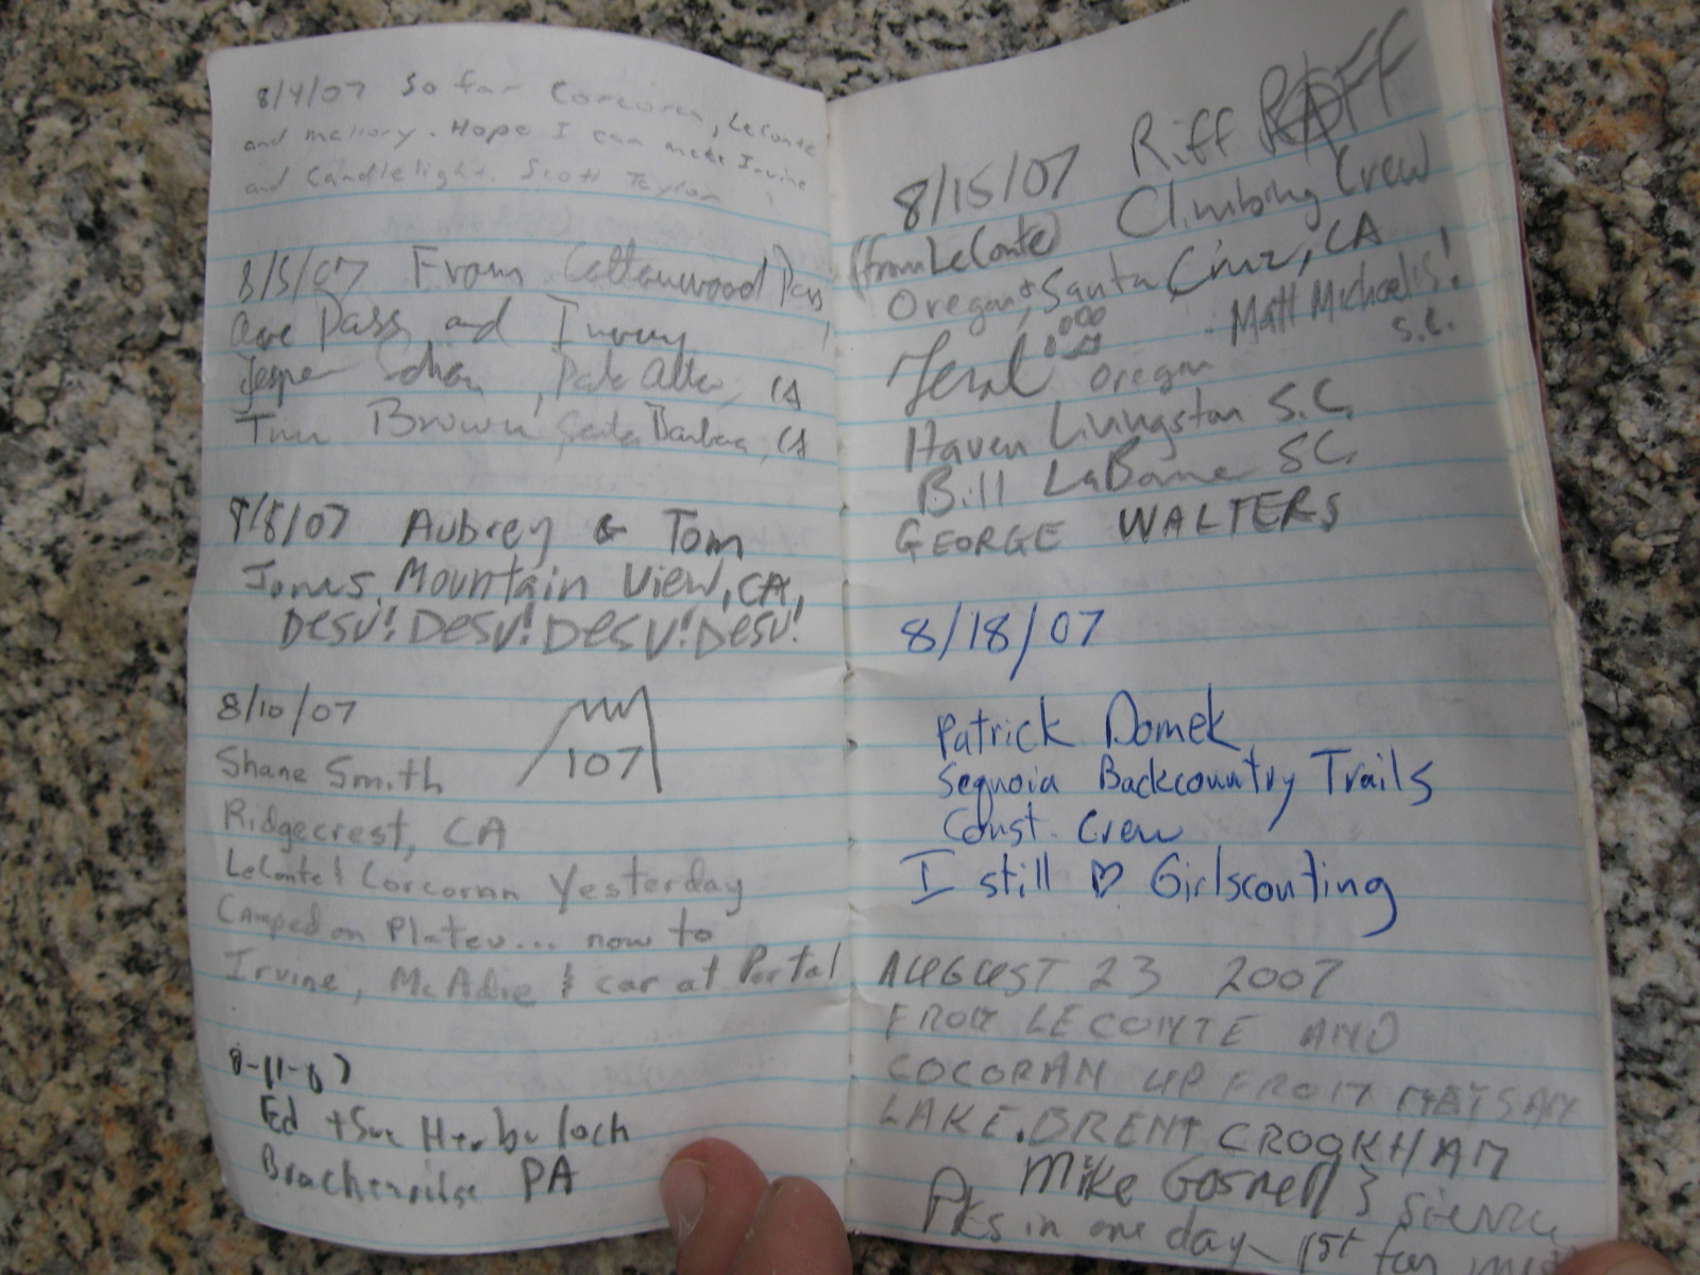 8/4/07 So far Corcoran, LeConte
and mallory. Hope I can make Irvine
and Candlelight. Scott Taylor
8/5/07 From Cottonwood Pass,
Pass and
Jesper , Palo Alto, CA
Tim Brown Santa Barbara, CA
8/8/07 Aubrey & Tom
Jones, Mountain View, CA,
DESU! DESU! DESU! DESU!
8/10/07
107
Shane Smith
Ridgecrest, CA
LeConte & Corcoran Yesterday
Camped on Plateu... now to
Irvine, McAdie & car at Portal
8-11-07
Ed + Sue
PA
8/15/07 Riff RAFF
(from LeConte) Climbing Crew
Oregon & Santa Cruz, CA
Matt Michaelis!
S.C.
Feral Oregon
Haven Livingston S.C.
Bill S.C.
GEORGE WALTERS
8/18/07
Patrick Domek
Sequoia Backcountry Trails
Const. Crew
I still ♡ Girlscouting
AUGUST 23 2007
FROM LECONTE AND
COCORAN UP FROM
LAKE. BRENT CROOKHAM
Mike Gosnell 3 sierra
PKs in one day 1st for me